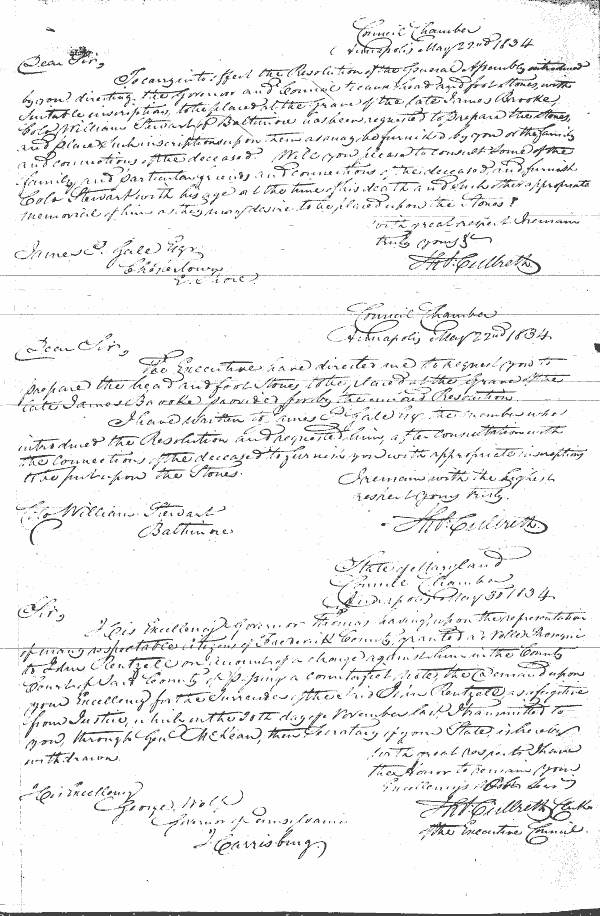 Council Chamber
Annapolis May 22nd 1834
Dear Sir,
To carry into effect the Resolution of the General Assembly introduced
by you directing the Governor and Council to cause head and foot stones, with
suitable inscriptions, to be placed at the grave of the late James Brooke,
Colo. William Stewart of Baltimore has been requested to prepare the stones,
and place such inscriptions upon them as may be furnished by you or the family
and connections of the deceased. Will you please to consult some of the
family, and particular friends and connections of the deceased, and furnish
Colo Stewart with his age at the time of his death and such other appropriate
memorial of him as they may desire to be placed upon the Stones?
With great respect I remain
truly yours &c
James P. Gale Esqr.
Chestertown
E. Shore
Thos. Culbreth
Council Chamber
Annapolis May 22nd 1834
Dear Sir,
The Executive have directed me to request you to
prepare the head and foot Stones to be placed at the Grave of the
late James Brooke provided for by the enclosed Resolution.
I have written to James P. Gale Esq. the member who
introduced the Resolution and requested him, after Consultation with
the Connections of the deceased to furnish you with appropriate inscriptions
to be put upon the Stones.
I remain with the highest
respect yours truly.
Colo William Stewart
Baltimore
Thos. Culbreth
State of Maryland
Council Chamber
Annapolis May 1834
Sir,
His Excellency Governor Thomas having, upon the representation
of many respectable citizens of Frederick County, granted a Nolle Prosequi
to John on account of a charge against him in the County
Court of said County, of passing a counterfeit note, the demand upon
your Excellency for the Surrender of the said John as a fugitive
from Justice, which on the 20th day of November last, I transmitted to
you, through Genl. McKean, then Secretary of your State is hereby
withdrawn.
With great respect I have
the Honor to remain your
Excellency's Obt. Servt
His Excellency
George Wolf
Governor of Pennsylvania
Harrisburg
Thos. Culbreth Clerk
of the Executive Council.